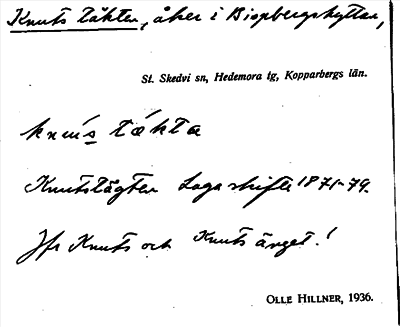 Knuts täkten, åker i Bispbergshyttan,
St. Skedvi sn, Hedemora tg, Kopparbergs län.
knu̇s täkta
Knutstägten Laga skifte 1871-79.
Jfr Knuts och Knutsänget!
OLLE HILLNER, 1936.